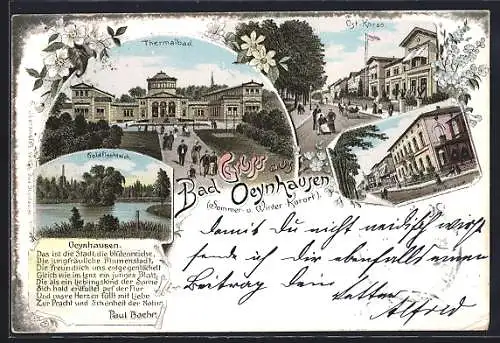 Thermalbad.
Ost-Korso.
Goldfischteich.
Gruss aus
Bad Oeynhausen
(Sommer- u. Winter Kurort).
Oeynhausen.
Das ist die Stadt, die blüthenreiche,
Die jungfräuliche Blumenstadt,
Die freundlich uns entgegenlächelt
Gleich wie im Lenz ein junges Blatt,
Die als ein Lieblingskind der Sonne
Sich hold entfaltet auf der Flur
Und unsre Herzen füllt mit Liebe
Zur Pracht und Schönheit der Natur.
Paul Baehr.
Damit Du nicht neidisch wirst
sende ich Dir ebenfalls einen
Beitrag dem
Alfred